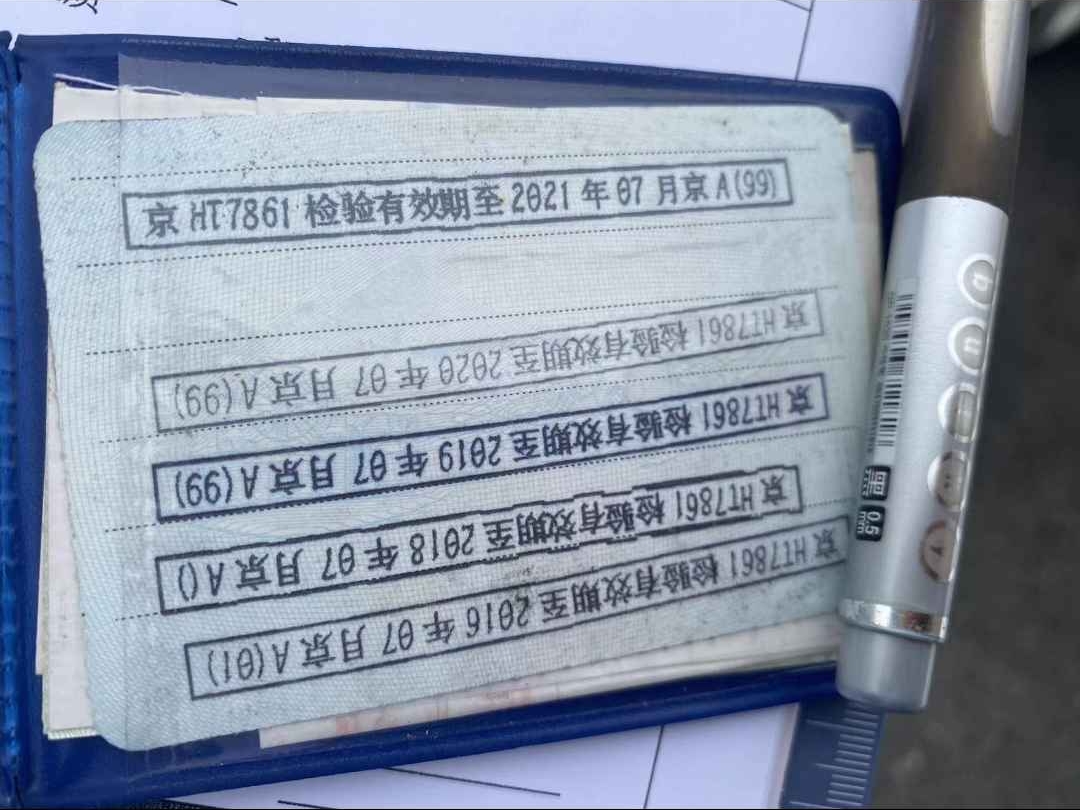 京 HT7861 检验有效期至 2021 年 07 月京 A(99)
京 HT7861 检验有效期至 2020 年 07 月京 A(99)
京 HT7861 检验有效期至 2019 年 07 月京 A(99)
京 HT7861 检验有效期至 2018 年 07 月京 A()
京 HT7861 检验有效期至 2016 年 07 月京 A(01)
0.5
mm